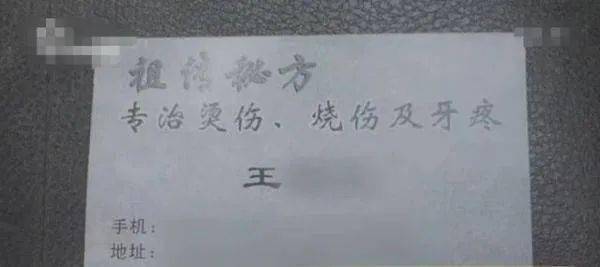 祖传秘方
专治烫伤、烧伤及牙疼
王
手机:
地址: